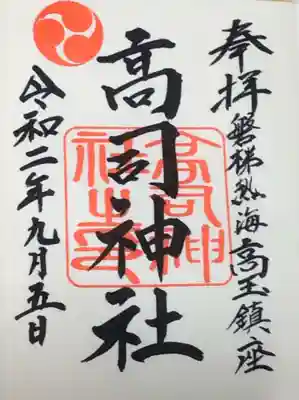 奉拝 磐梯熱海高玉鎮座
高司神社
令和二年九月五日
高司神社之印